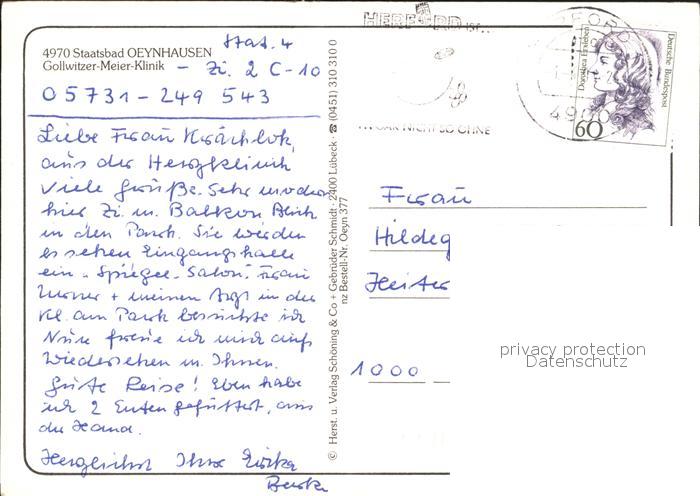 4970 Staatsbad OEYNHAUSEN
Gollwitzer-Meier-Klinik
Stat. 4
- Zi. 2 C-10
05731-249 543
Liebe Frau
aus der Herzklinik
viele Grüße. Sehr modern
hier Zi. m. Balkon Blick
in den Park. Sie werden
es sehen Eingangshalle
ein "Spiegel-Salon". Frau
+ meinen Arzt in der
Kl. am Park besuchte ich
Nun freue ich mich aufs
Wiedersehen m. Ihnen.
Gute Reise! Eben habe
ich 2 Enten gefüttert, aus
der Hand.
Herzlichst Ihre Erika
© Herst. u. Verlag Schöning & Co + Gebrüder Schmidt · 2400 Lübeck · ☎ (0451) 310 310 0
nz Bestell-Nr. Oeyn 377
HERFORD ist...
GAR NICHT SO OHNE
Dorothea Erxleben
Deutsche Bundespost
60
Frau
Hildeg
1000
privacy protection
Datenschutz